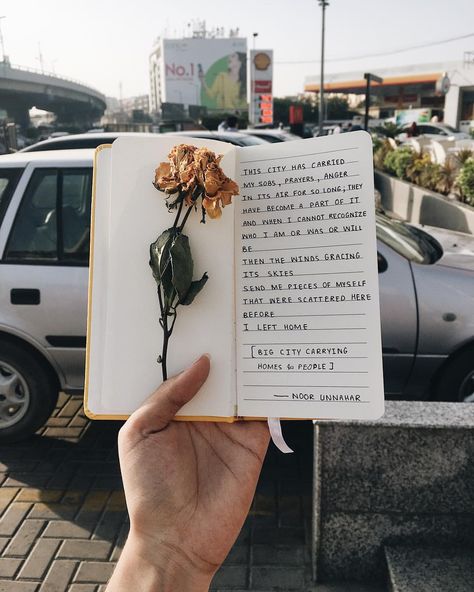 No.1
THIS CITY HAS CARRIED
MY SOBS, PRAYERS, ANGER
IN ITS AIR FOR SO LONG; THEY
HAVE BECOME A PART OF IT
AND WHEN I CANNOT RECOGNIZE
WHO I AM OR WAS OR WILL
BE
THEN THE WINDS GRACING
ITS SKIES
SEND ME PIECES OF MYSELF
THAT WERE SCATTERED HERE
BEFORE
I LEFT HOME
[BIG CITY CARRYING
HOMES & PEOPLE]
— NOOR UNNAHAR